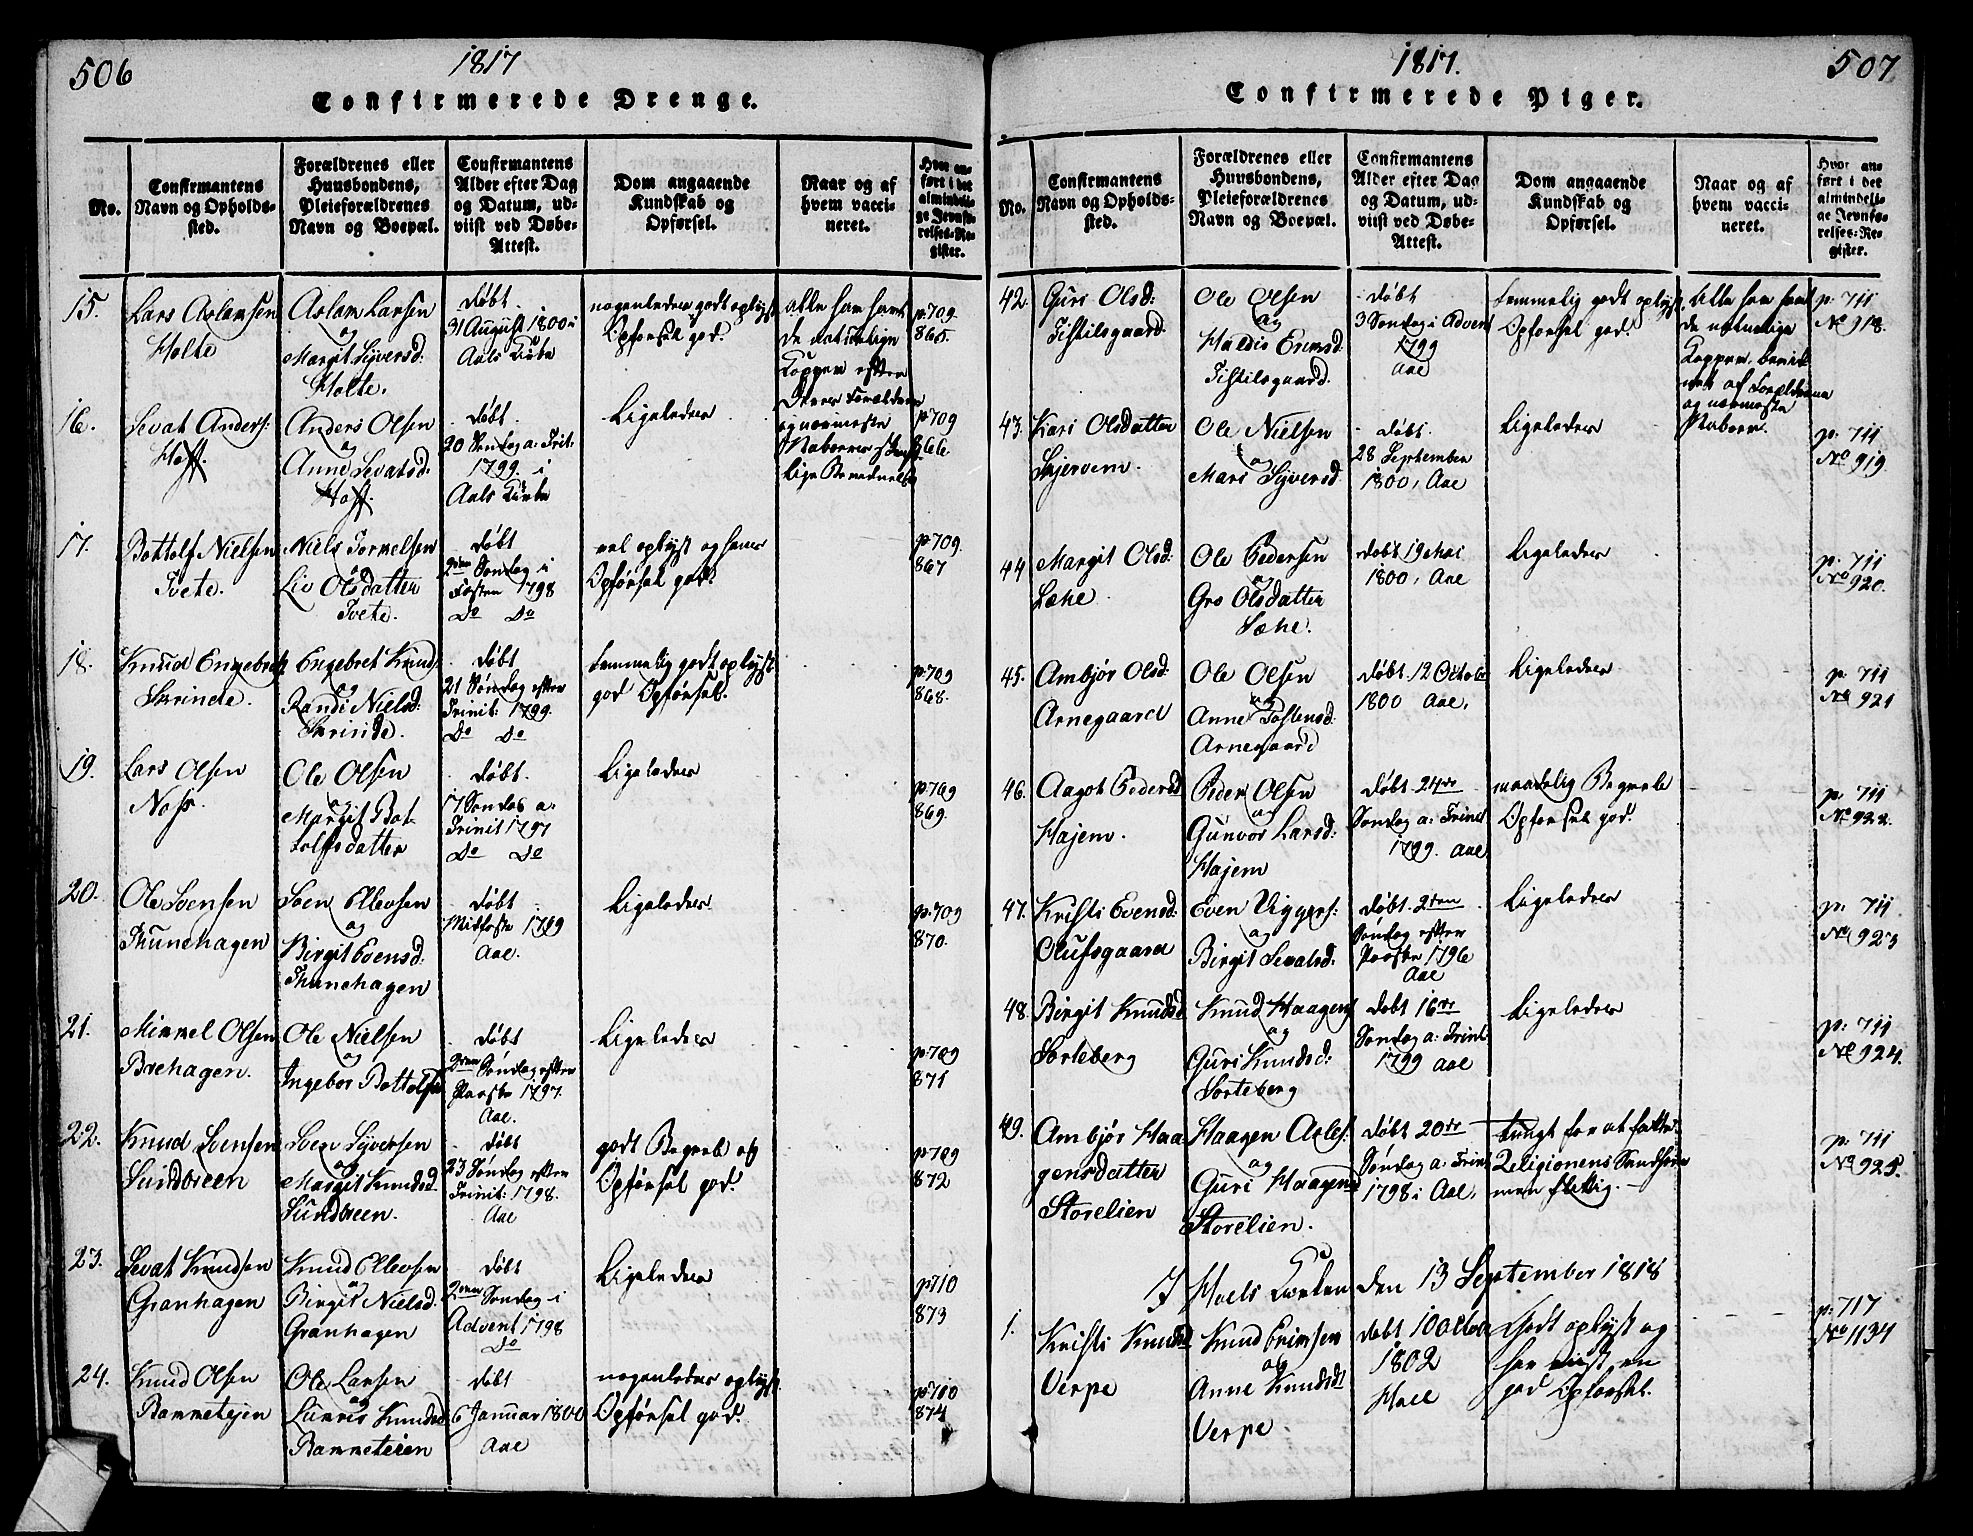 506
1817
Confirmerede Drenge.
No.
Confirmantens
Navn og Opholds-
sted.
Forældrenes eller
Huusbondens,
Pleieforældrenes
Navn og Boepæl.
Confirmantens
Alder efter Dag
og Datum, ud-
viist ved Døbe-
Attest.
Dom angaaende
Kundskab og
Opførsel.
Naar og af
hvem vacci-
neret.
Hvor an-
ført i det
almindeli-
ge Jevnfø-
relses-Re-
gister.
15.
Lars Aslansen
Holte
Aslam Larsen
og
Margit Syversd:
Holte.
døbt
31 August 1800 i
Aals Kirke
nogenledes godt oplyst
Opførsel god.
alle har havt
de naturlige
Kopper efter
Deres Forældres
og nærmeste
Naboers
lige Bevidnelse
p. 709
865.
16.
Sevat Anders:
Hoff.
Anders Olsen
og
Anne Sevatsd:
Hoff.
døbt
20 Søndag a: Trit:
1799. i
Aals Kirke
Ligeledes
p 709
866.
17.
Bottolf Nielsen
Tvete.
Niels Tormelsen
og
Liv Olsdatter
Tvete.
døbt
Søndag i
Fasten 1798
Do Do
vel oplyst og hans
Opførsel god.
p 709.
867
18.
Knud Engebretz
Skrinde.
Engebret Knud:
og
Randi Nielsd:
Skrinde.
døbt
21 Søndag efter
Trinit: 1799.
Do Do
temmelig godt oplyst
god Opførsel.
p 709
868.
19.
Lars Olsen
Noss.
Ole Olsen
og
Margit Bot-
tolfsdatter
døbt.
17 Søndag a:
Trinit 1797
Do Do
Ligeledes
p. 709
869.
20.
Ole Svensen
Thunehagen
Sven Ellevsen
og
Birgit Evensd:
Thunehagen
døbt
Midfaste 1799
Aal.
Ligeledes
p. 709
870.
21.
Mimmel Olsen
Brehagen.
Ole Nielsen
og
Ingebor Bottolfs
døbt
Søndag efter
Paaske 1797.
Aal.
Ligeledes
p. 709
871
22.
Knud Svensen
Sundreen
Sven Syversen
og
Margit Knudsd.
Sundreen.
døbt
23 Søndag efter
Trinit: 1798.
Aal
godt Begreb og
Opførsel god.
p 709
872
23.
Sevat Knudsen
Granhagen
Knud Ellevsen
og
Birgit Nielsd.
Granhagen
døbt
2den Søndag i
Advent 1798
Do
Ligeledes
p 710
873
24.
Knud Olsen
Bammetejen
Ole Larsen
og
Kundsd
Bammeteien
døbt
6 Januar 1800
Aal
nogenledes oplyst
Opførsel god.
p 710
874
1817.
507
Confirmerede Piger.
No.
Confirmantens
Navn og Opholds-
sted.
Forældrenes eller
Huusbondens,
Pleieforældrenes
Navn og Boepæl.
Confirmantens
Alder efter Dag
og Datum, ud-
viist ved Døbe-
Attest.
Dom angaaende
Kundskab og
Opførsel.
Naar og af
hvem vacci-
neret.
Hvor an-
ført i det
almindeli-
ge Jevnfø-
relses-Re-
gister.
42.
Guri Olsd:
Tistilsgaard.
Ole Olsen
og
Haldis Erensd.
Tistilsgaard.
døbt
3 Søndag i Advent
1799
Aal
temmelig godt oplyst
Opførsel god.
Alle har havt
de naturlige
Kopper, bevid-
net af Forældrene
og nærmeste
Naboer.
p. 711
No 918.
43.
Kari Olsdatter
Skjervem.
Ole Nielsen
og
Mari Syversd.
døbt.
28 September
1800, Aal
Ligeledes
p. 711
No 919
44
Margit Olsd:
Sæhe.
Ole Pedersen
og
Gro Olsdatter
Sæhe.
døbt 19 Mai
1800, Aal
Ligeledes
p. 711
No 920.
45.
Ambjør Olsd:
Arnegaard
Ole Olsen
og
Anne Tostensd:
Arnegaard
døbt 12 October
1800 Aal,
Ligeledes
p. 711
No 921
46.
Aagot Pedersd
Hajem.
Peder Olsen
og
Gunvor Larsd:
Hajem
døbt 24de
Søndag a: Trinit
1799. Aal
maadelig Begreb
Opførsel god.
p. 711
No 922.
47.
Kristi Evensd:
Olufsgaard
Even Viggers:
og
Birgit Sevatsd:
døbt 2den
Søndag efter
Paaske 1796
Aal
Ligeledes
p. 711
No 923
48.
Birgit Knudsd
Sorteberg
Knud Haagens
og
Guri Knudsd:
Sorteberg
døbt 16de
Søndag a: Trinit:
1799 Aal
Ligeledes
p. 711
No 924.
49.
Ambjør Haa-
gensdatter
Storelien
Haagen Asles:
og
Guri Haagens
Storelien.
døbt 20de
Søndag a: Trinit
1798 i Aal,
tungt for at fatte
Religionens Sandheder
men flittig.
p. 711
No 925.
I Hoels Kirken den 13 September 1818
1.
Kristi Knudsd
Verpe
Knud Erimsen
og
Anne Knudsd
Verpe
døbt 10 Octobr
1802
Hoel
Godt oplyst og
har viist en
god Opførsel.
p. 717
No 1134